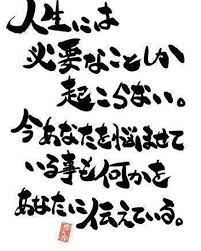 人生には
必要なことしか
起こらない。
今あなたを悩ませて
いる事も何かを
あなたに伝えている。